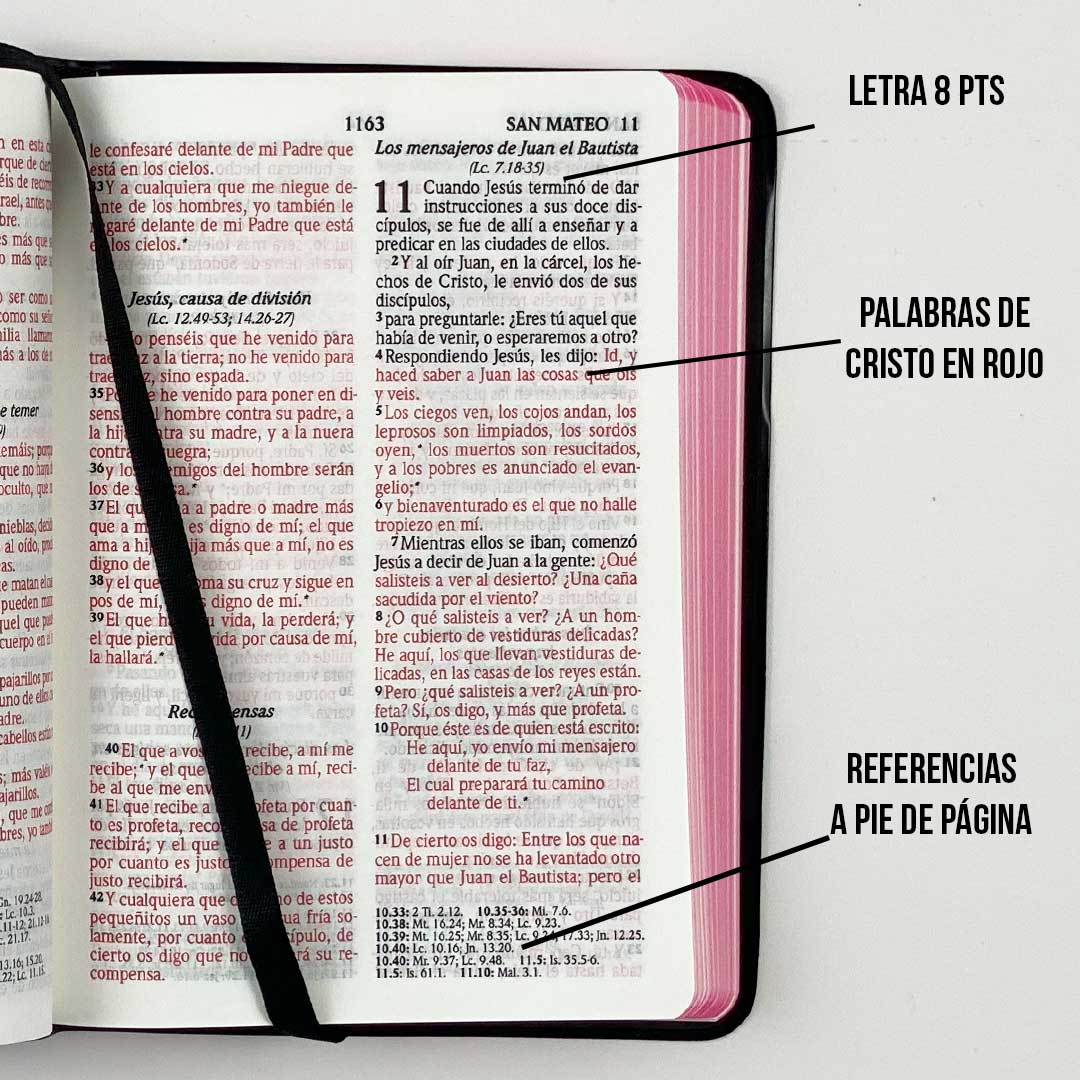 LETRA 8 PTS
PALABRAS DE
CRISTO EN ROJO
REFERENCIAS
A PIE DE PÁGINA
1163
SAN MATEO 11
le confesaré delante de mi Padre que
está en los cielos.
33 Y a cualquiera que me niegue de-
de los hombres, yo también le
delante de mi Padre que está
los cielos.*
Jesús, causa de división
(Lc. 12.49-53; 14.26-27)
penséis que he venido para
paz a la tierra; no he venido para
sino espada.
35 he venido para poner en di-
hombre contra su padre, a
la su madre, y a la nuera
suegra;
36 y del hombre serán
los de
37 El a padre o madre más
que a es digno de mí; el que
ama a más que a mí, no es
digno de
38 y el que toma su cruz y sigue en
pos de mí, digno de mí.*
39 El que su vida, la perderá; y
el que vida por causa de mí,
la hallará.*
40 El que a recibe, a mí me
recibe;* y el que a mí, reci-
be al que me
41 El que recibe a profeta por cuan-
to es profeta, de profeta
recibirá; y el que a un justo
por cuanto es
justo recibirá.
42 Y cualquiera que de estos
pequeñitos un vaso fría so-
lamente, por cuanto
cierto os digo que no su re-
compensa.
Los mensajeros de Juan el Bautista
(Lc. 7.18-35)
11 Cuando Jesús terminó de dar
instrucciones a sus doce dis-
cípulos, se fue de allí a enseñar y a
predicar en las ciudades de ellos.
2 Y al oír Juan, en la cárcel, los he-
chos de Cristo, le envió dos de sus
discípulos,
3 para preguntarle: ¿Eres tú aquel que
había de venir, o esperaremos a otro?
4 Respondiendo Jesús, les dijo: Id, y
haced saber a Juan las cosas que oís
y veis.
5 Los ciegos ven, los cojos andan, los
leprosos son limpiados, los sordos
oyen,* los muertos son resucitados,
y a los pobres es anunciado el evan-
gelio;*
6 y bienaventurado es el que no halle
tropiezo en mí.
7 Mientras ellos se iban, comenzó
Jesús a decir de Juan a la gente: ¿Qué
salisteis a ver al desierto? ¿Una caña
sacudida por el viento?
8 ¿O qué salisteis a ver? ¿A un hom-
bre cubierto de vestiduras delicadas?
He aquí, los que llevan vestiduras de-
licadas, en las casas de los reyes están.
9 Pero ¿qué salisteis a ver? ¿A un pro-
feta? Sí, os digo, y más que profeta.
10 Porque éste es de quien está escrito:
He aquí, yo envío mi mensajero
delante de tu faz,
El cual preparará tu camino
delante de ti.*
11 De cierto os digo: Entre los que na-
cen de mujer no se ha levantado otro
mayor que Juan el Bautista; pero el
10.33: 2 Ti. 2.12. 10.35-36: Mi. 7.6.
10.38: Mt. 16.24; Mr. 8.34; Lc. 9.23.
10.39: Mt. 16.25; Mr. 8.35; Lc. 9.24; 17.33; Jn. 12.25.
10.40: Lc. 10.16; Jn. 13.20.
10.40: Mr. 9.37; Lc. 9.48. 11.5: Is. 35.5-6.
11.5: Is. 61.1. 11.10: Mal. 3.1.